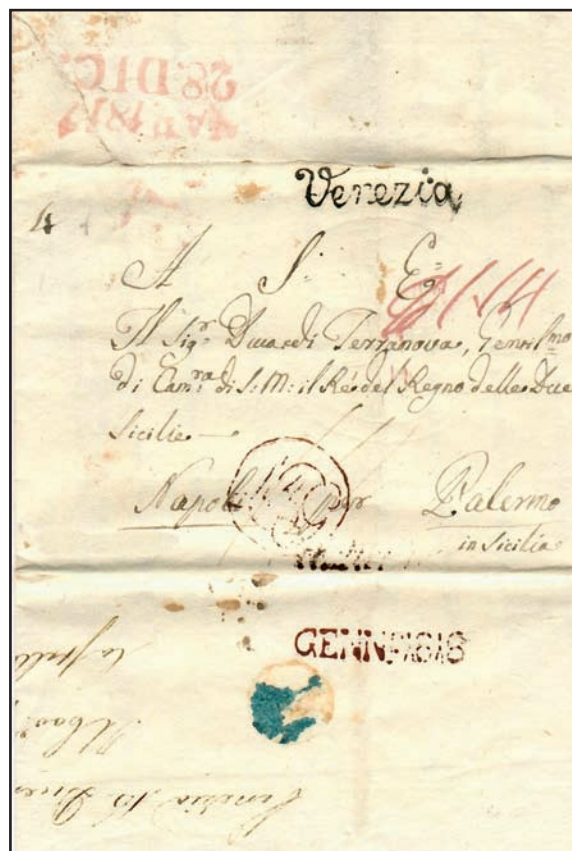 28. DIC.
NAP. 1817
Venezia
4
A S: E:
Il Sigr. Duca di Terranova, Gentilmo
di Camra di S: M: il Ré del Regno delle Due
Sicilie
Napoli per Palermo
in Sicilia
GENN. 1818
Venezia 15